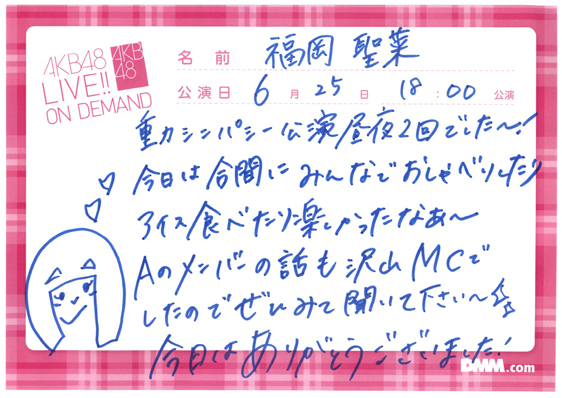 AKB48
LIVE!!
ON DEMAND
AKB
48
名前 福岡 聖菜
公演日 6月 25日 18:00 公演
重力シンパシー公演昼夜2回でした〜!
今日は合間にみんなでおしゃべりしたり
アイス食べたり楽しかったなあ〜
Aのメンバーの話も沢山MCで
したのでぜひみて聞いて下さい〜☆
今日はありがとうございました!
DMM.com